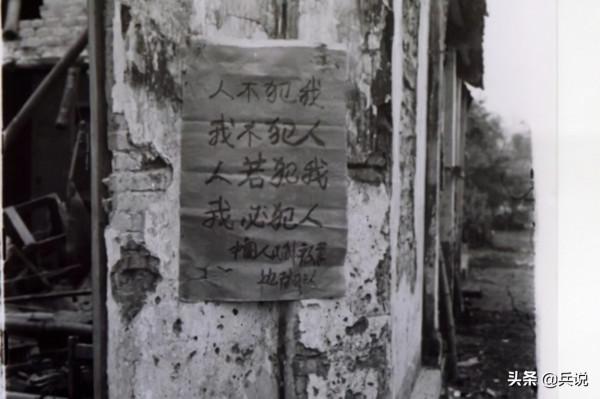 人不犯我
我不犯人
人若犯我
我必犯人
中国人民
头条 @兵说